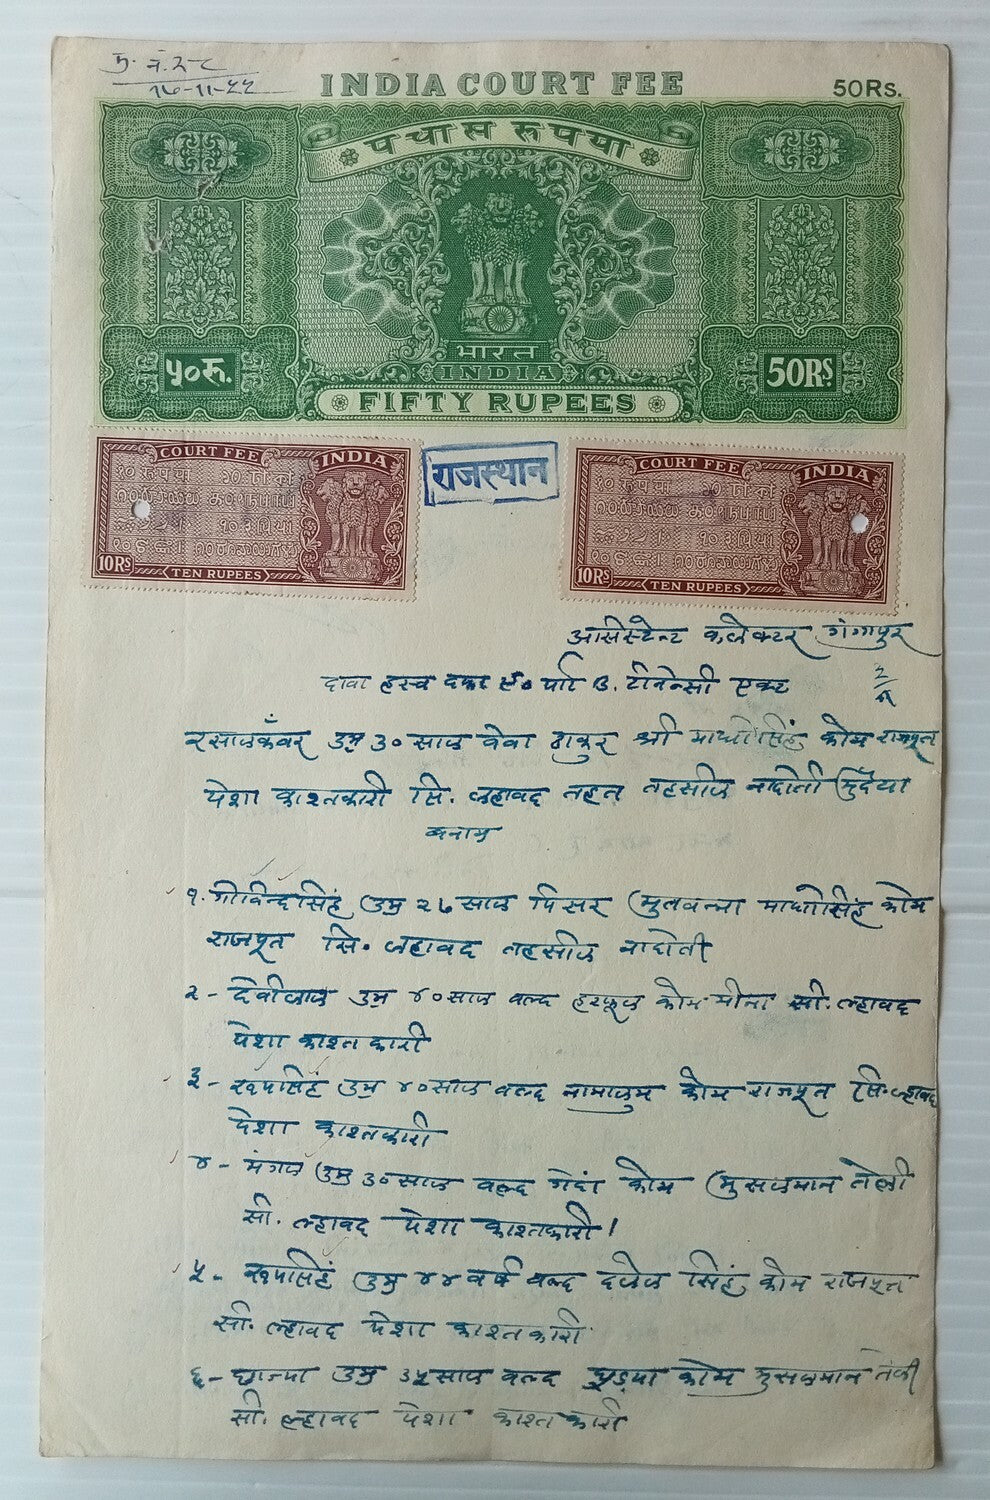 INDIA COURT FEE
50RS.
१७-११-५५
पचास रुपया
भारत
INDIA
५०रु.
50RS
FIFTY RUPEES
COURT FEE INDIA
१० रुपया
10RS TEN RUPEES
राजस्थान
COURT FEE INDIA
१० रुपया
10RS TEN RUPEES
आसिस्टेन्ट कलेक्टर गंगापुर
दावा हस्व दफा टीनेन्सी एक्ट
रसालकँवर उम्र ३० साल बेवा ठाकुर श्री माधोसिंह कोम राजपूत
पेशा काश्तकारी सि. ल्हावद तहत तहसील नादोती मुद्दैया
बनाम
१. गोविन्दसिंह उम्र २७ साल पिसर मुतबन्ना माधोसिंह कोम
राजपूत सि. ल्हावद तहसील नादोती
२- देवीलाल उम्र ४० साल वल्द हरफूल कोम मीना सी. ल्हावद
पेशा काश्तकारी
३- रूपसिंह उम्र ४० साल वल्द नामालुम कोम राजपूत सि. ल्हावद
पेशा काश्तकारी
४- मंगल उम्र ३० साल वल्द गेंदा कोम मुसलमान तेली
सी. ल्हावद पेशा काश्तकारी।
५- रूपसिंह उम्र ४४ वर्ष वल्द सिंह कोम राजपूत
सी. ल्हावद पेशा काश्तकारी
६- उम्र ३५ साल वल्द कोम मुसलमान तेली
सी. ल्हावद पेशा काश्तकारी